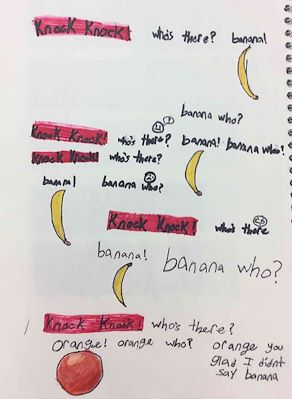 Knock Knock! who's there? banana!
banana who?
Knock Knock! who's there? banana! banana who?
Knock Knock! who's there?
banana! banana who?
Knock Knock! who's there
banana! banana who?
Knock Knock! who's there?
Orange! orange who? orange you
glad I didnt
say banana